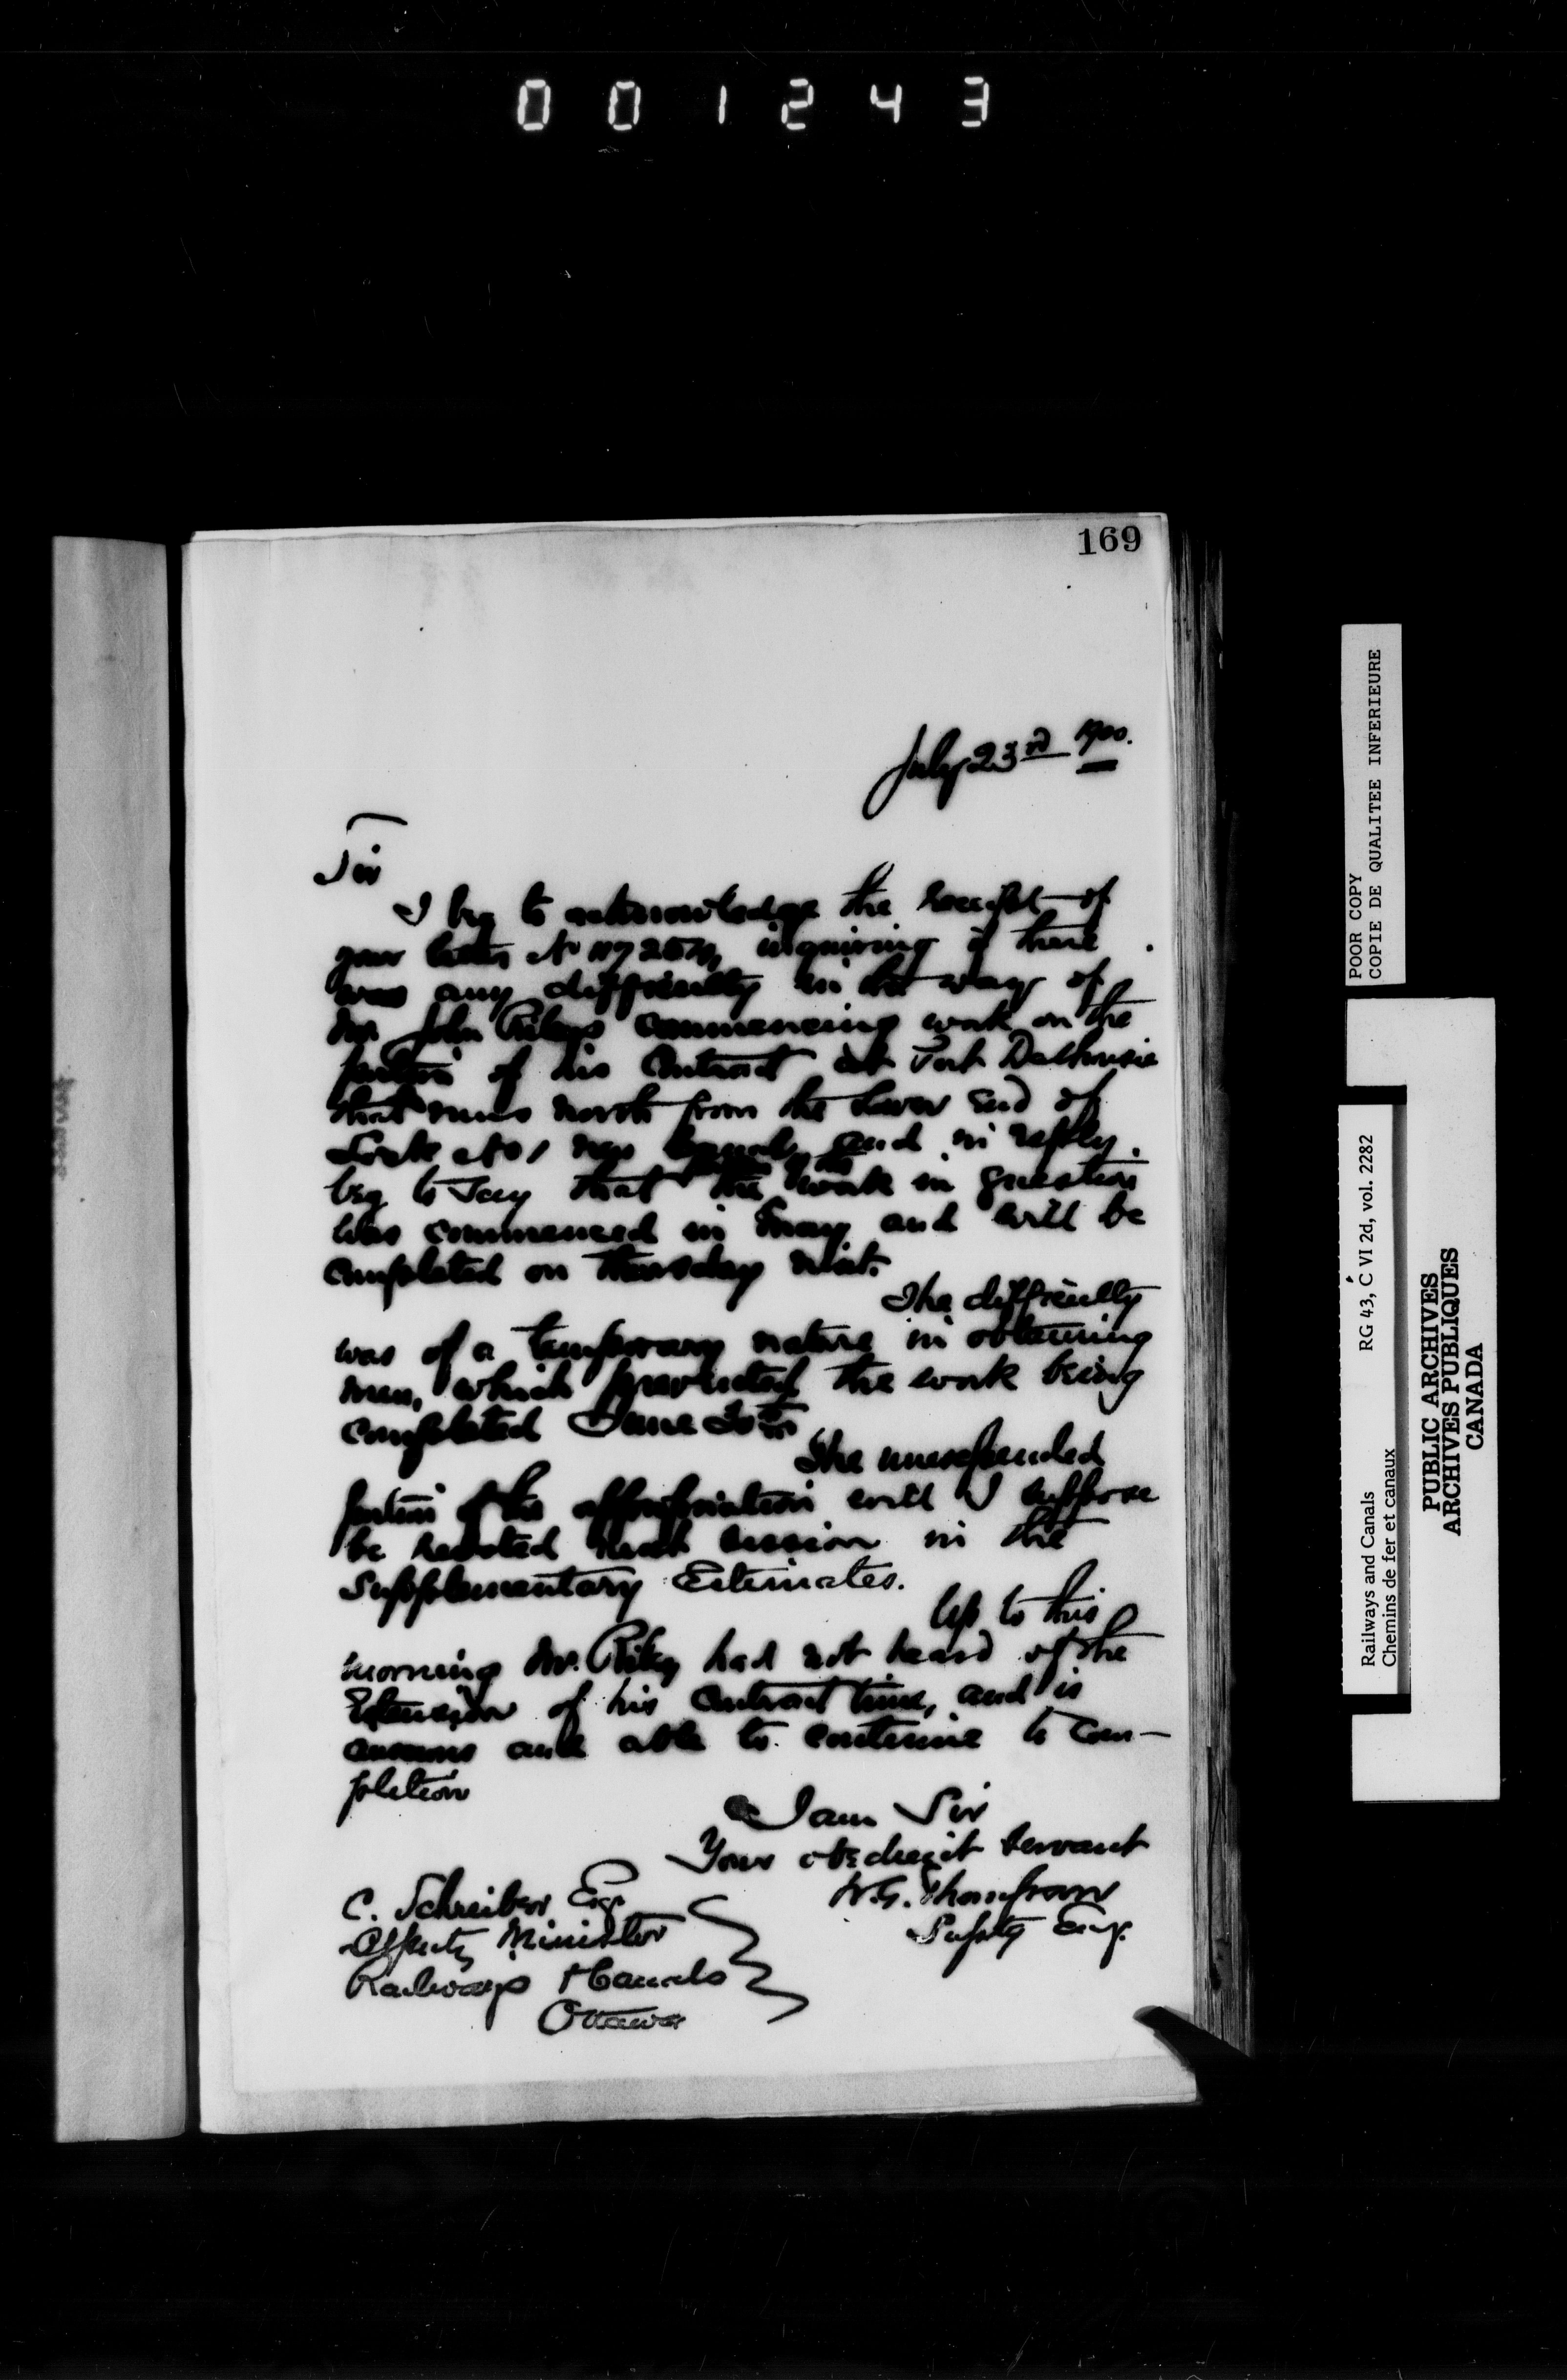 001243
169
July 23rd 1900.
Sir
I beg to acknowledge the receipt of
your letter No inquiring if there
was any difficulty in the way of
Mr. John Riley's commencing work on the
portion of his Contract at Port Dalhousie
that runs north from the lower end of
Lock No 1 new and in reply
beg to say that the work in question
was commenced in May and will be
completed on Thursday next.
The difficulty
was of a temporary nature in obtaining
men, which prevented the work being
completed June
The unexpended
portion of the appropriation will I suppose
be revoted next session in the
Supplementary Estimates.
Up to this
morning Mr. Riley had not heard of the
Extension of his contract time, and is
anxious and able to continue to com-
pletion
I am Sir
Your obedient servant
W.G. Thompson
Supty Eng.
C. Schreiber Esq
Deputy Minister
Railways & Canals
Ottawa
POOR COPY
COPIE DE QUALITEE INFERIEURE
Railways and Canals RG 43, C VI 2d, vol. 2282
Chemins de fer et canaux
PUBLIC ARCHIVES
ARCHIVES PUBLIQUES
CANADA